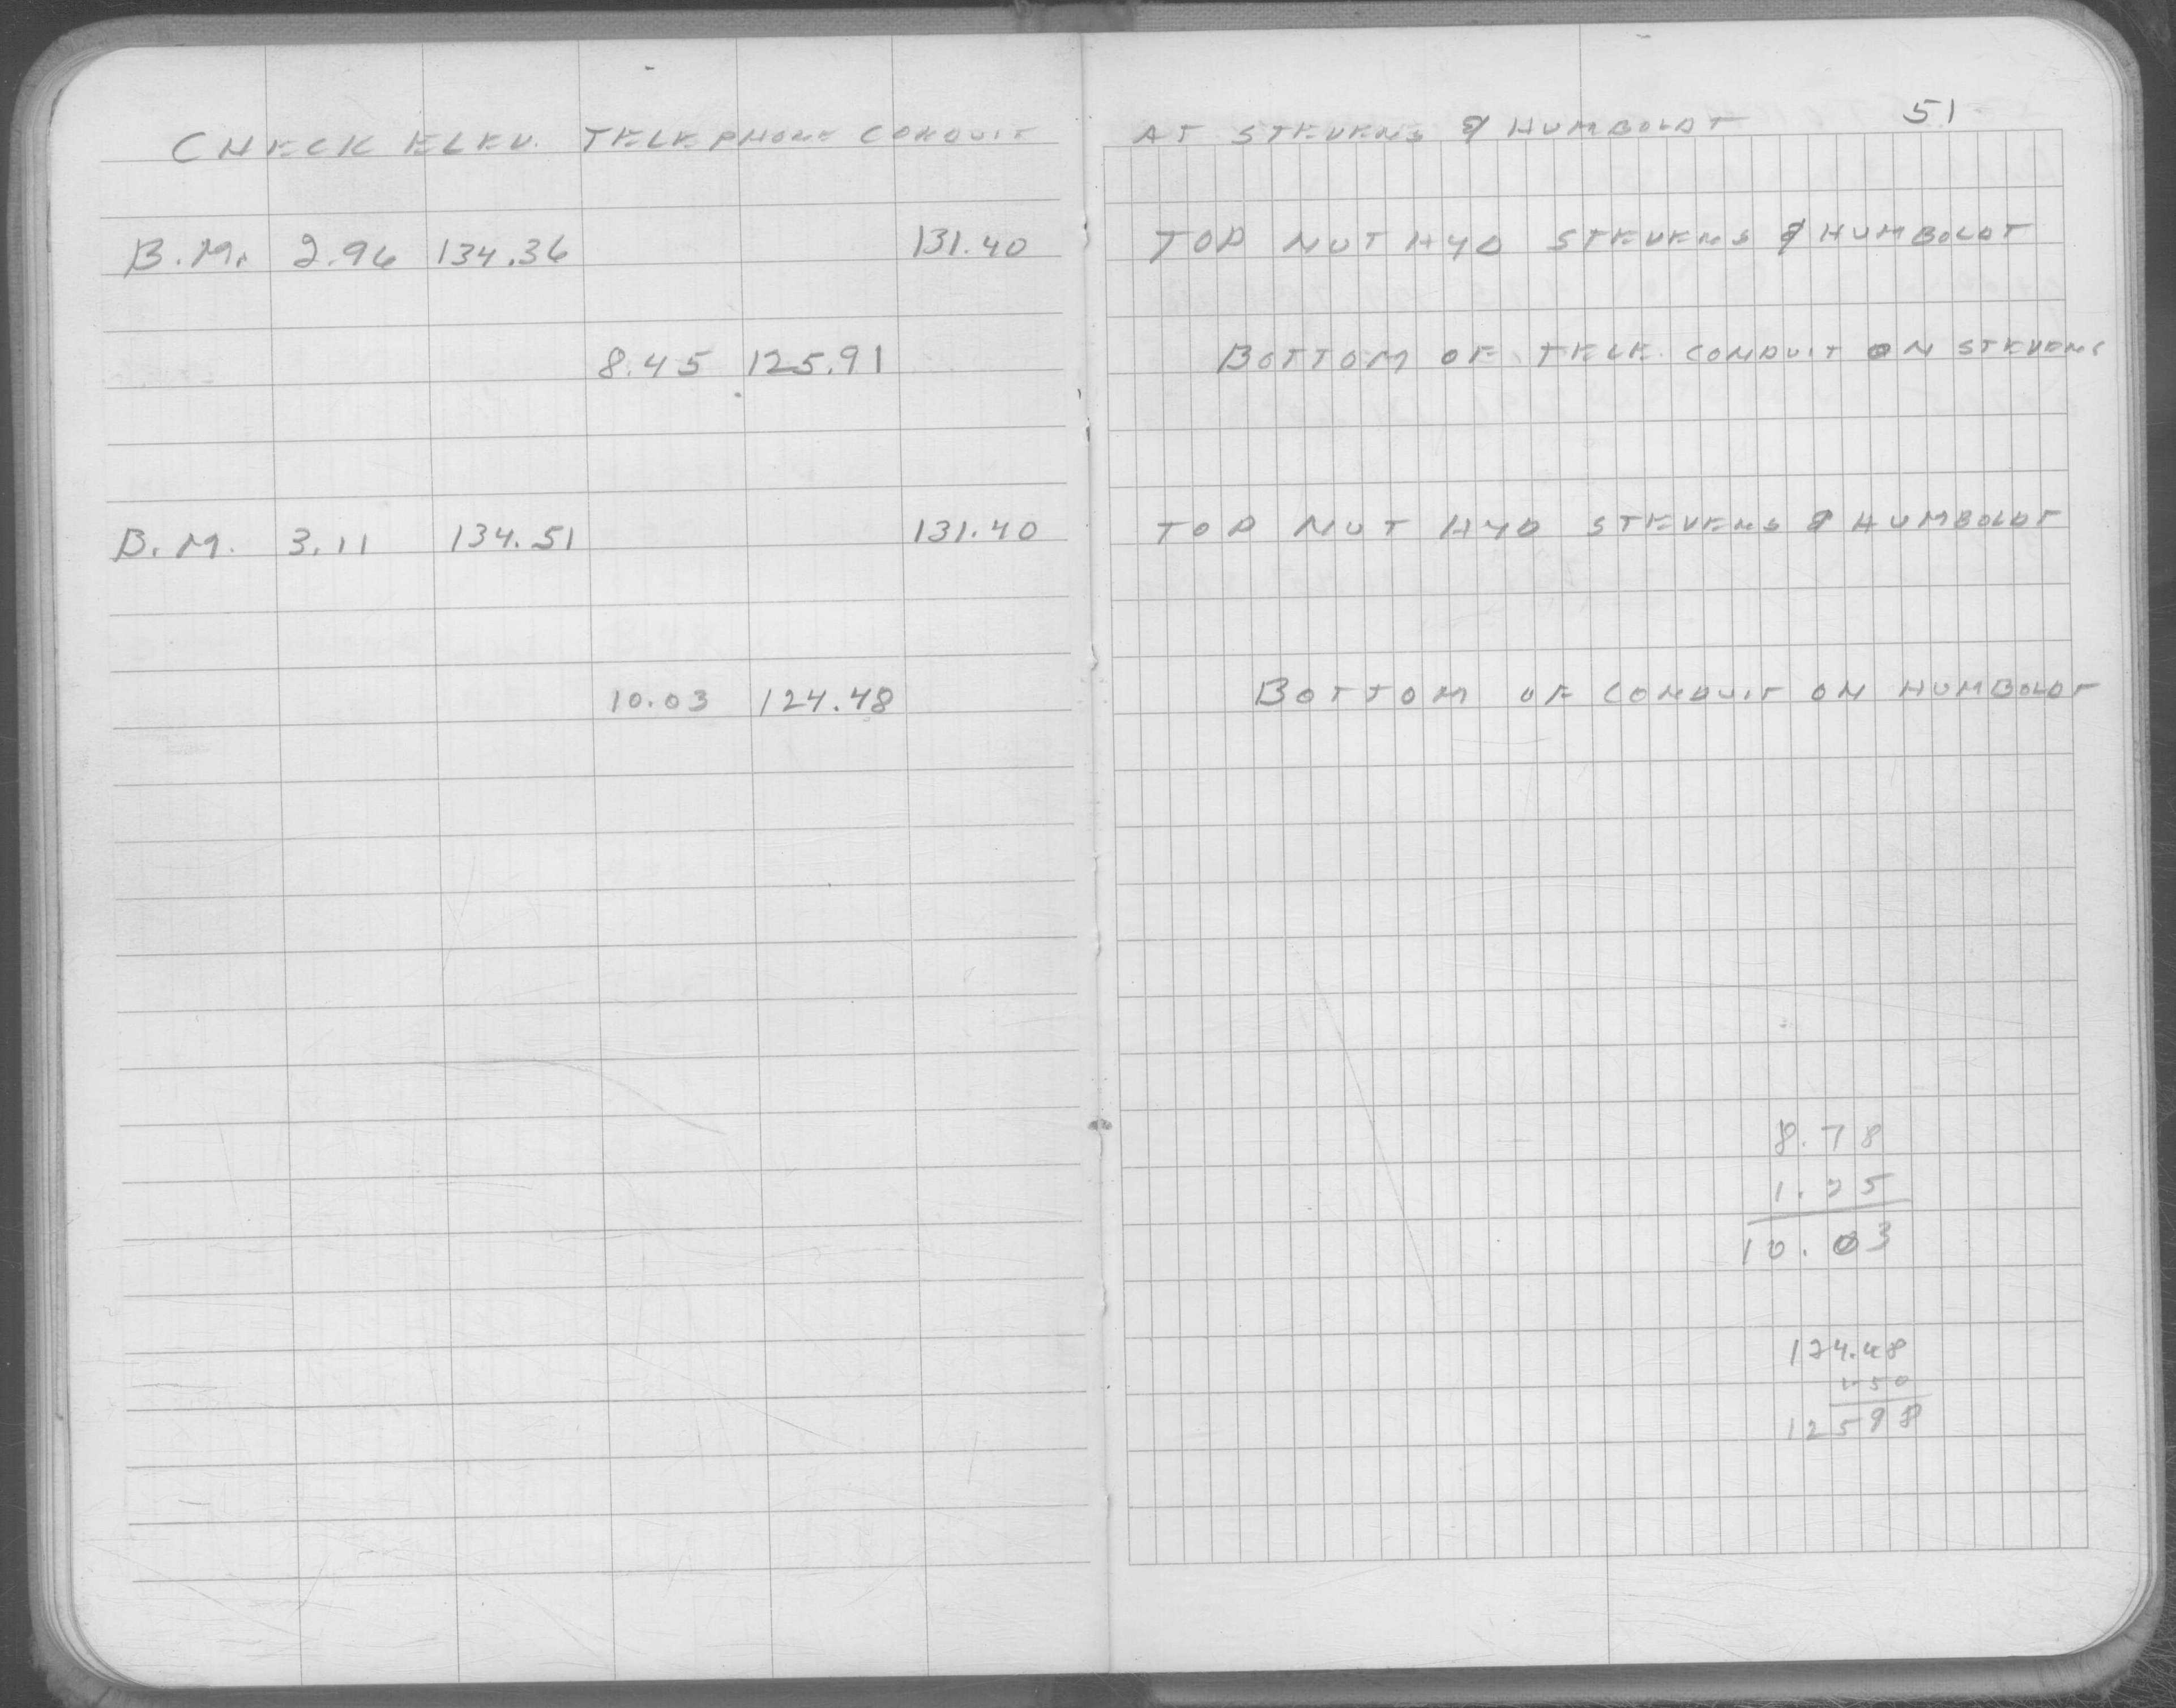 51
CHECK ELEV. TELEPHONE CONDUIT AT STEVENS & HUMBOLDT
B.M. 2.96 134.36 131.40 TOP NUT HYD STEVENS & HUMBOLDT
8.45 125.91 BOTTOM OF TELE. CONDUIT ON STEVENS
B.M. 3.11 134.51 131.40 TOP NUT HYD STEVENS & HUMBOLDT
10.03 124.48 BOTTOM OF CONDUIT ON HUMBOLDT
8.78
1.25
10.03
124.48
1.50
125 98